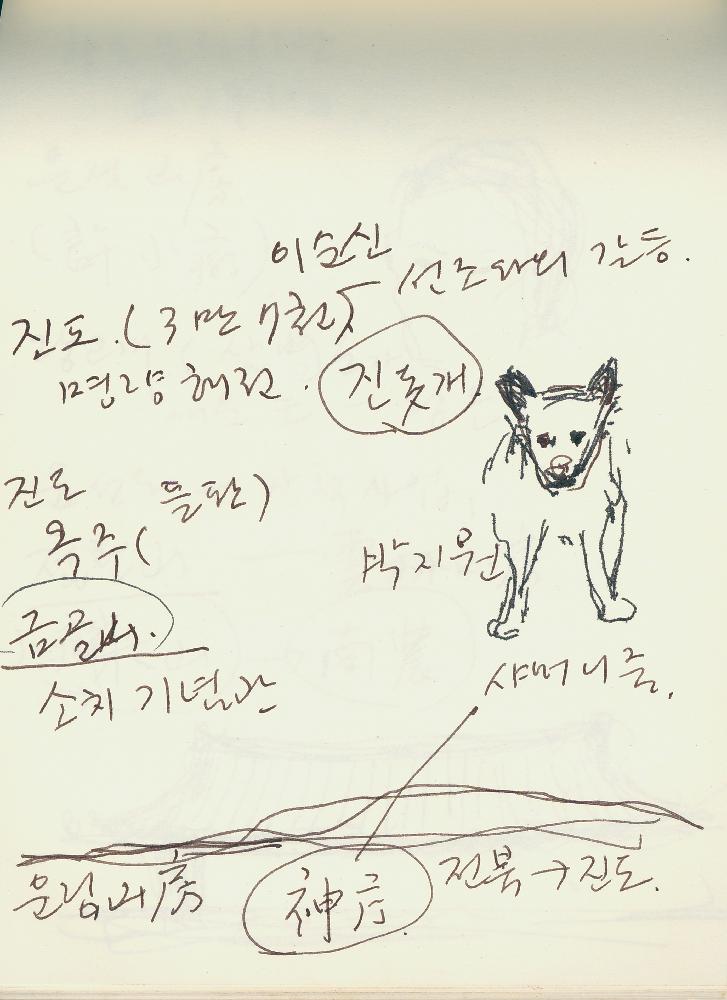 이순신
선조와의 갈등.
진도.(3만 7천)
명량해전. 진돗개
진도 뜰판)
옥주(
박지원
금골산.
소치 기념관
샤머니즘.
운림山房
神房
전북→진도.